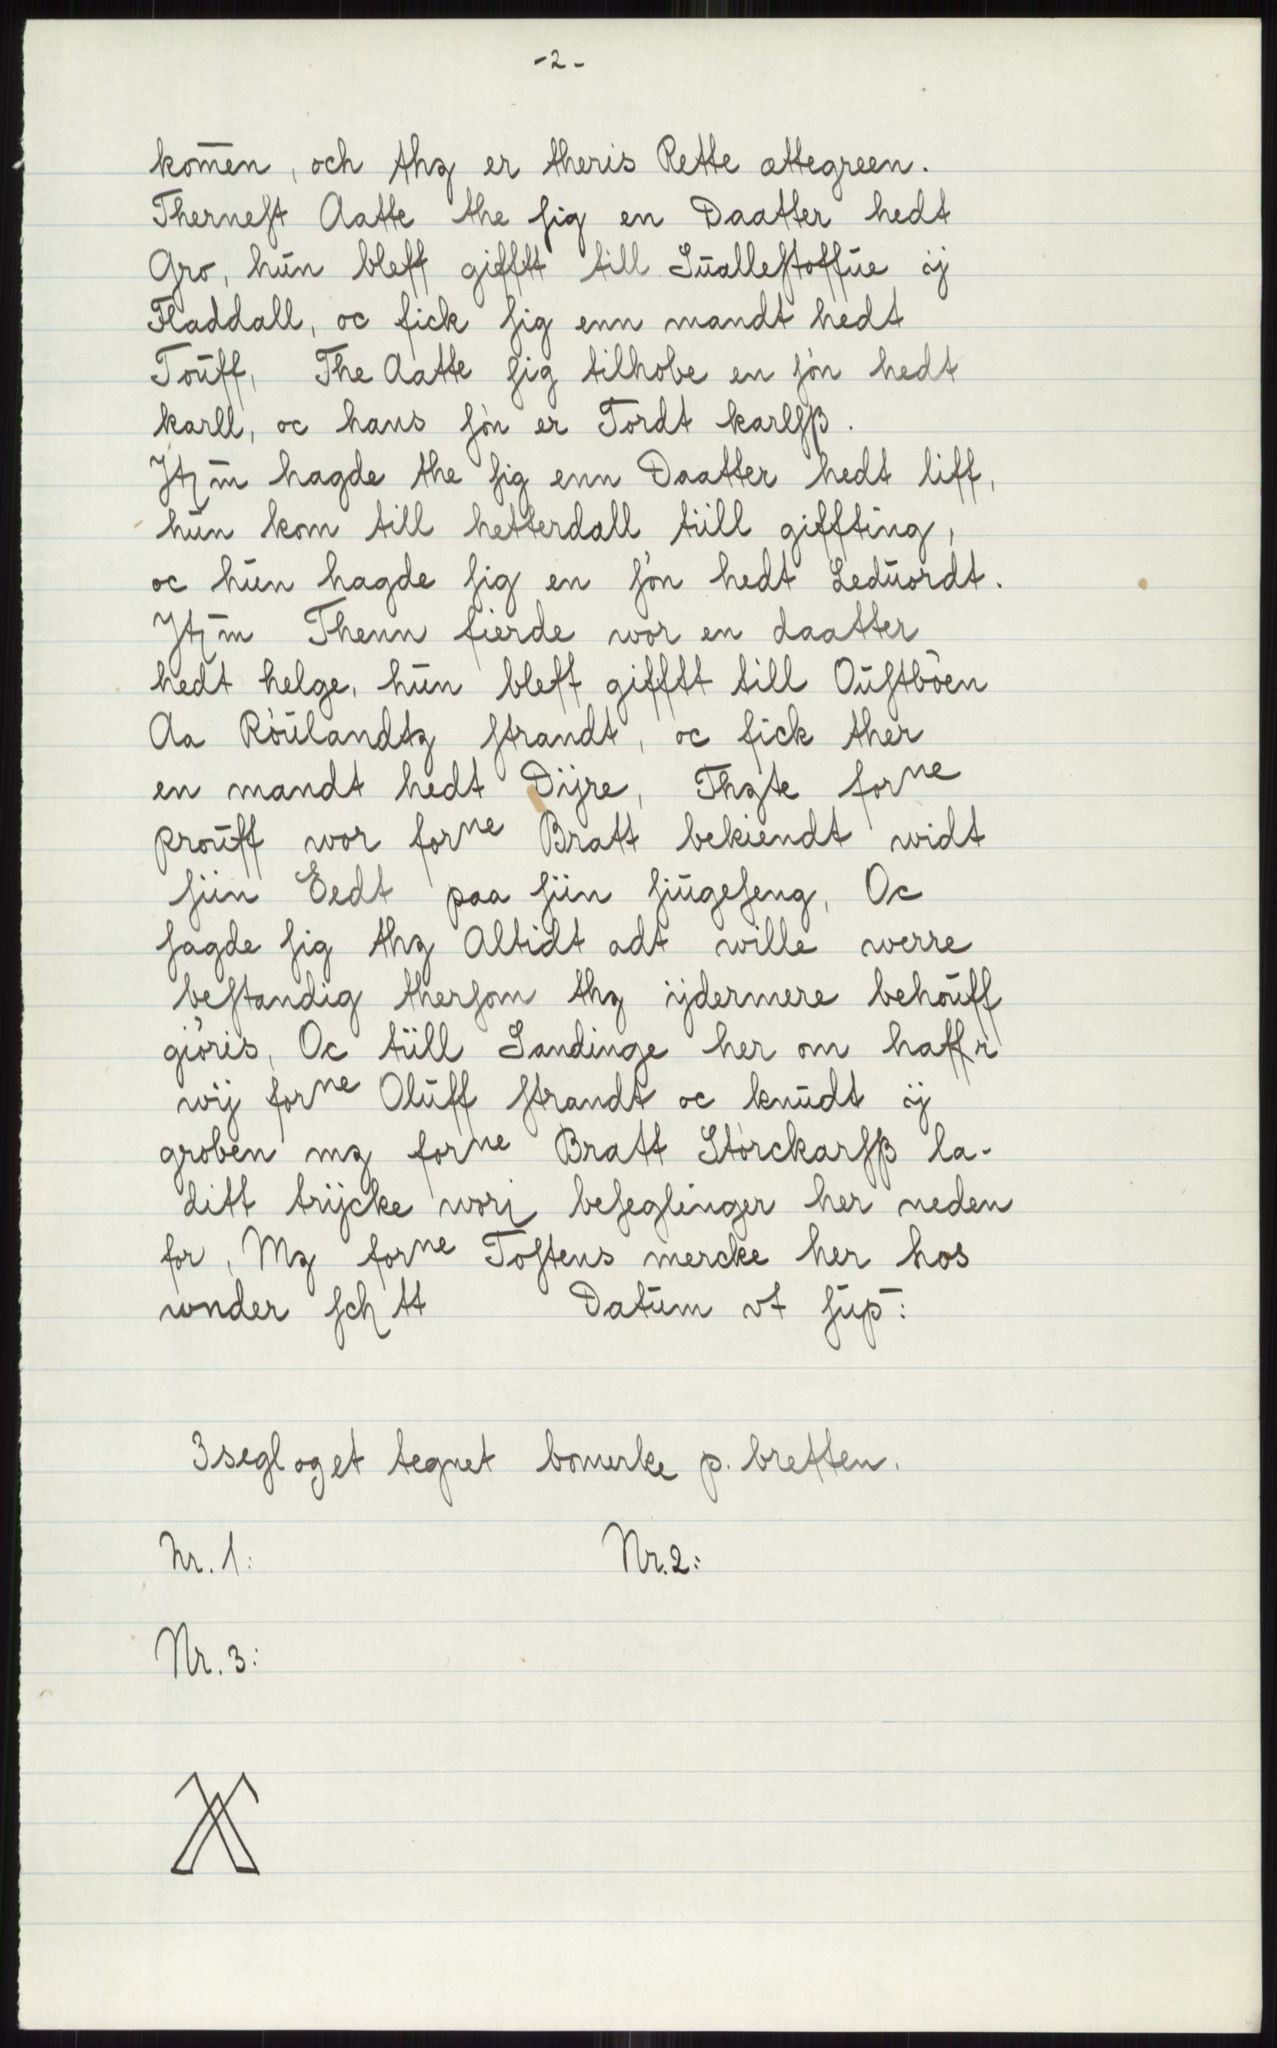 -2-
kom̄en, och thꝫ er theris Rette ættegreen.
Therneſt Aatte the ſig en Daatter hedt
Gro, hūn bleff giffſtt till Sūalleſtoffūe ÿ
Fladdall, oc fick ſig enn mandt hedt
Toūff, The Aatte ſig tilhobe en ſøn hedt
karll, oc hans ſøn er Tordt karlſꝭß.
Jtꝫm̄ hagde the ſig enn Daatter hedt liff,
hūn kom till hetterdall tiill giffting,
oc hūn hagde ſig en ſøn hedt Ledūordt.
Jtꝫm̄ Thenn fierde wor en daatter
hedt helge, hūn bleff giffſtt till Oūſtbøen
Aa Røūlandtꝫ ſtrandt, oc fick ther
en mandt hedt Dijre, Thꝫte forne
proūff wor forne Bratt bekiendt widt
ſiin Eedt paa ſiin ſiūgeſeng, Oc
ſagde ſig thꝫ Altidt adt wille werre
beſtandig therſom thꝫ ijdermere behoūff
giøris, Oc tiill Sandinge her om haffr
wij forne Olūff ſtrandt oc knūdt ÿ
groben mꝫ forne Bratt Størckarſß la-
ditt trijcke worꝭ beſeglinger her neden
for, Mꝫ forne Toſtens mercke her hos
wnder ſch tt Datūm vt ſūp̄:
3 segl og et tegnet bomerke p. bretten.
Nr. 1:
Nr. 2:
Nr. 3: